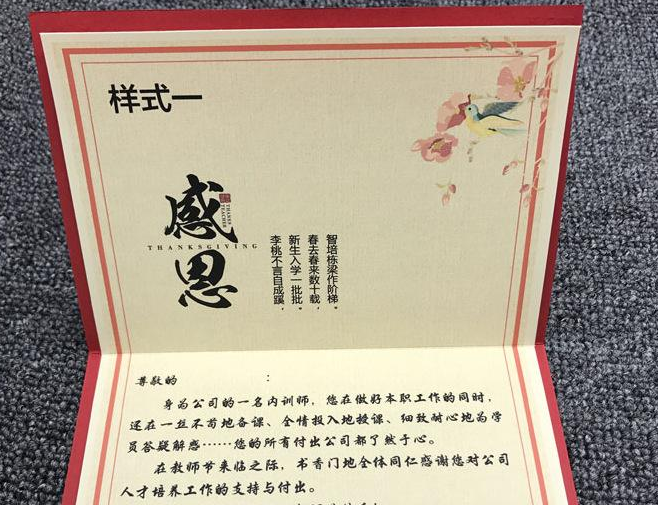 样式一
感恩
THANKS TEACHER
THANKSGIVING
智培栋梁作阶梯。
春去春来数十载，
新生入学一批批。
李桃不言自成蹊，
尊敬的：
身为公司的一名内训师，您在做好本职工作的同时，
还在一丝不苟地备课、全情投入地授课、细致耐心地为学
员答疑解惑……您的所有付出公司都了然于心。
在教师节来临之际，书香门地全体同仁感谢您对公司
人才培养工作的支持与付出。